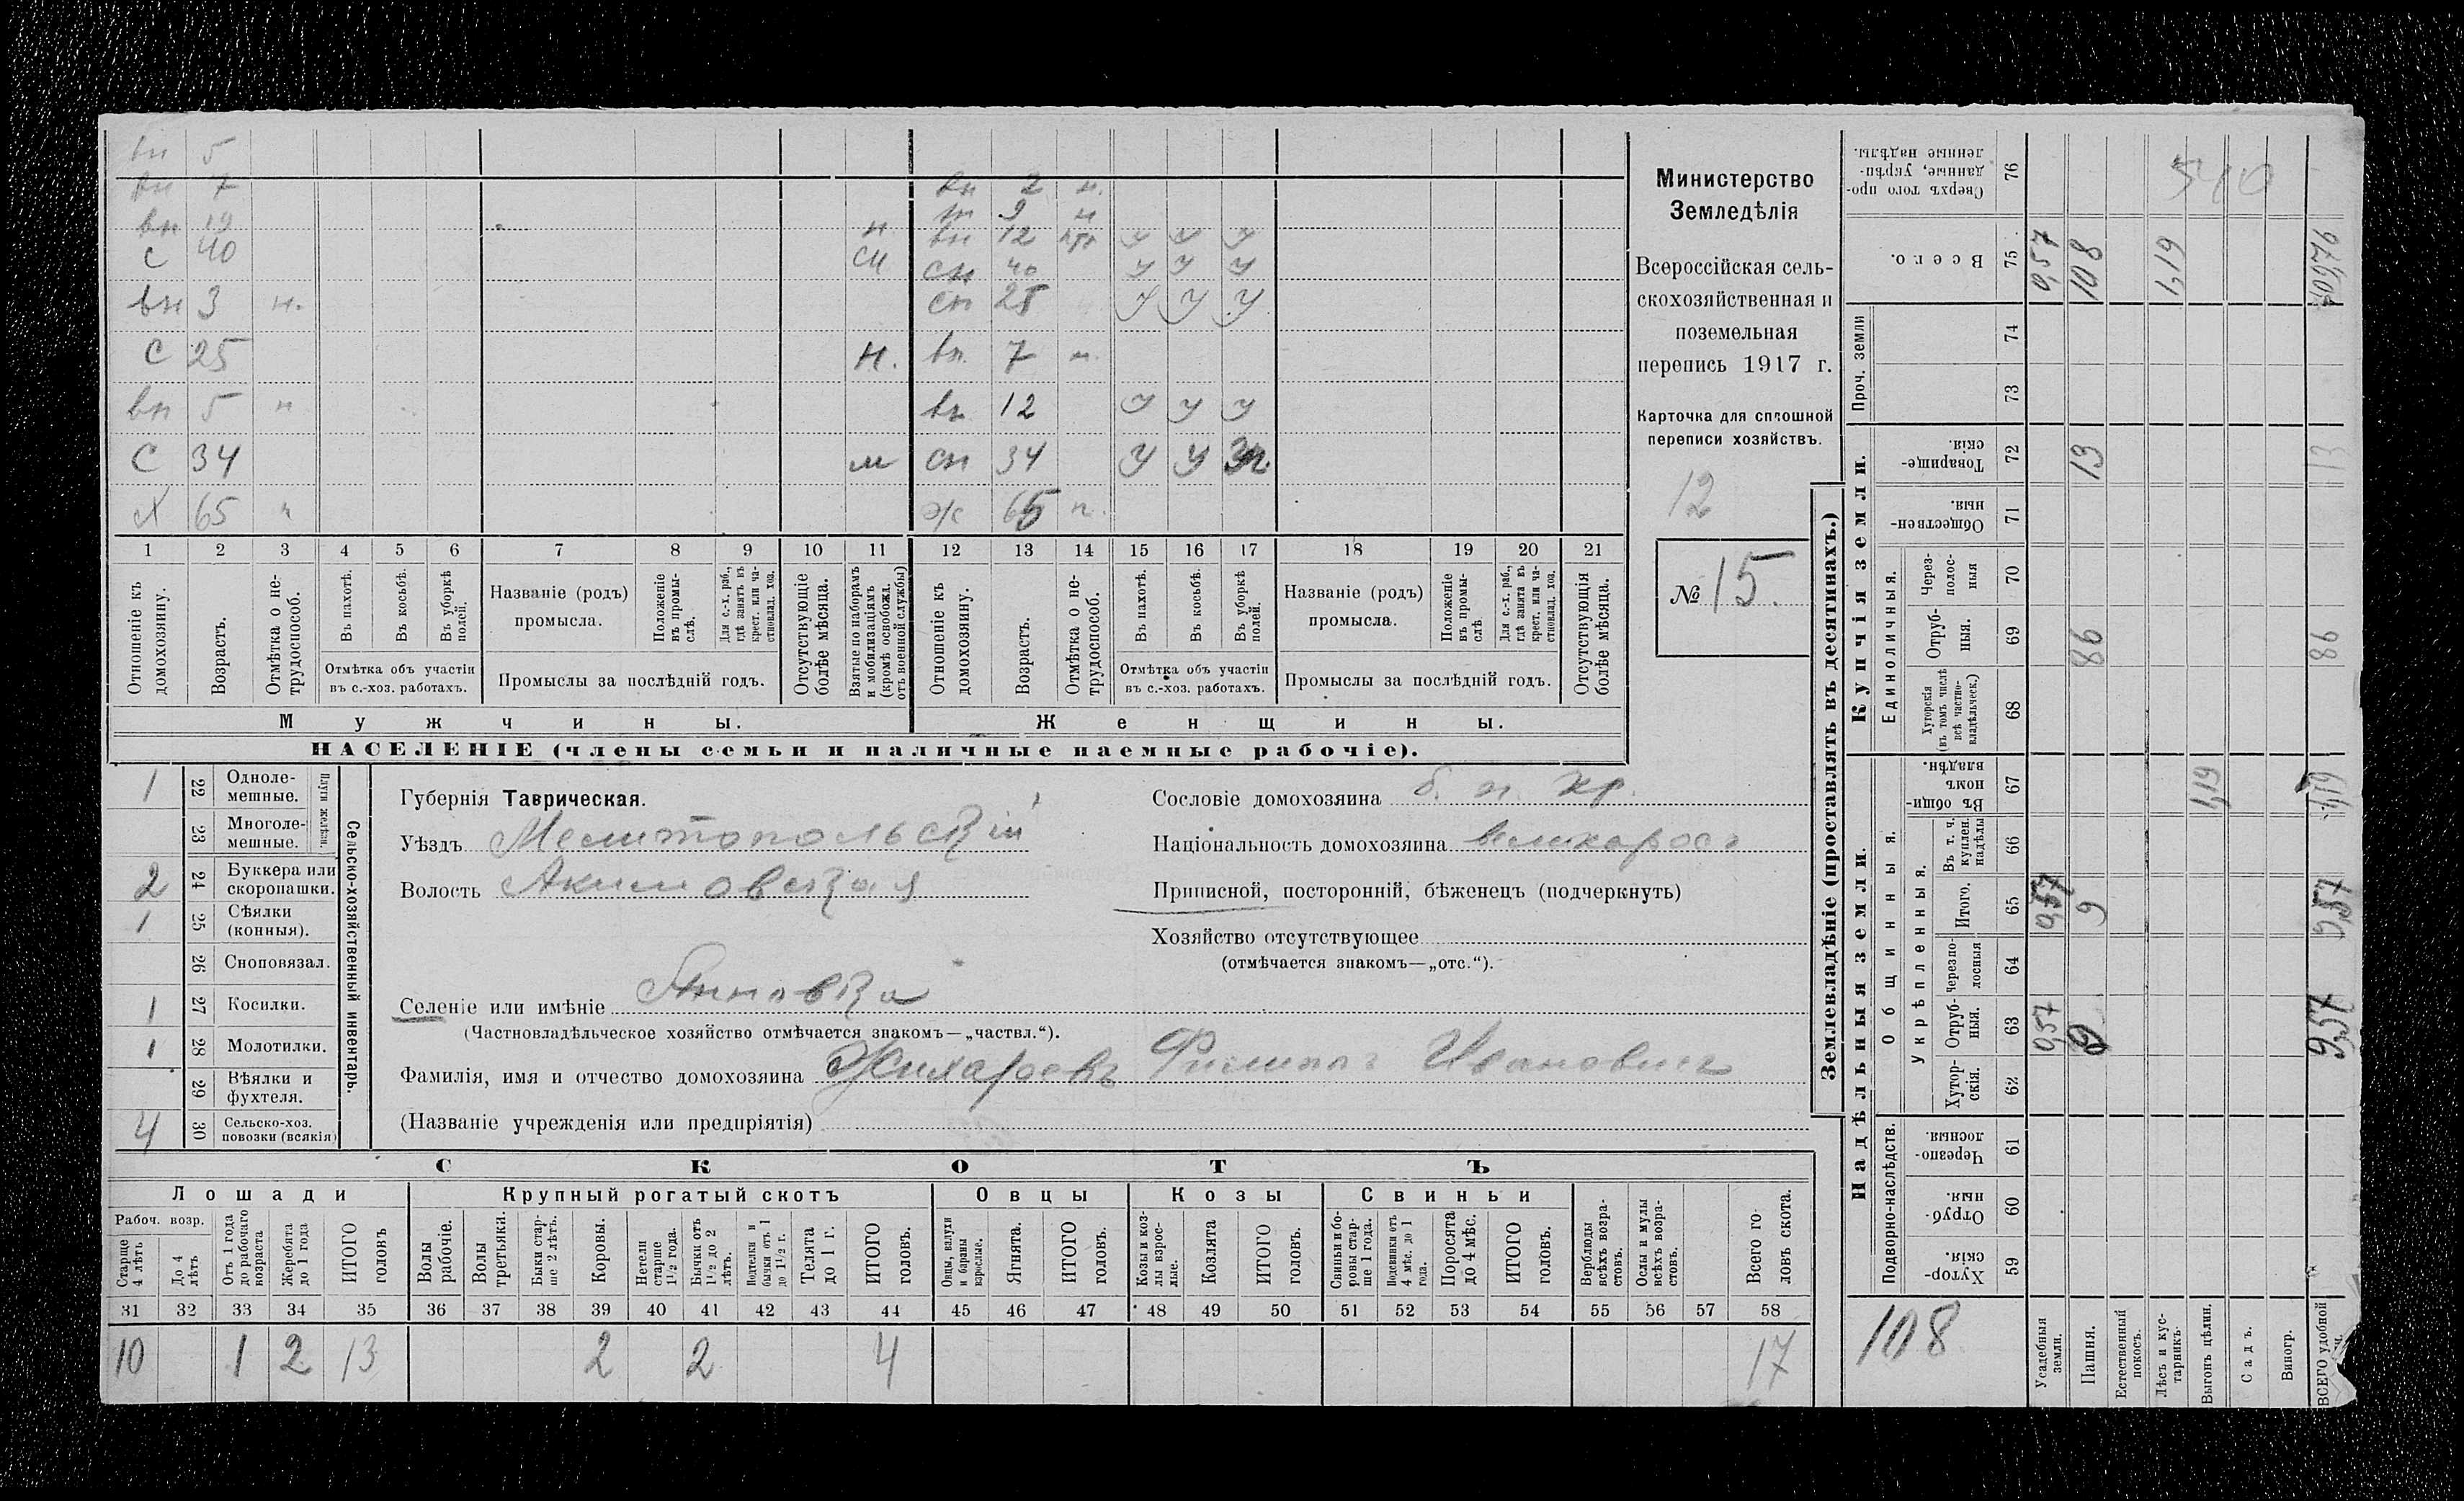 вн 5
вн 7 вн 2 н.
вн 19 н вн 9 н
вн 12 У У У
С 40 сн 40 У У У
вн 3 н. сн 25 У У У
С 25 н. вн. 7 н.
вн 5 н вн 12 У У У
С 34 м сн 34 У У
Х 65 н ж 65 н.
1 2 3 4 5 6 7 8 9 10 11 12 13 14 15 16 17 18 19 20 21
Отношеніе къ домохозяину.
Возрастъ.
Отмѣтка о не-трудоспособ.
Въ пахотѣ.
Въ косьбѣ.
Въ уборкѣ полей.
Отмѣтка объ участіи
въ с.-хоз. работахъ.
Названіе (родъ)
промысла.
Положеніе въ промы-слѣ.
Для с.-х. раб., гдѣ занятъ въ крест. или ча-стновлад. хоз.
Промыслы за послѣдній годъ.
Отсутствующіе болѣе мѣсяца.
Взятые по наборамъ и мобилизаціямъ (кромѣ освобожд. отъ военной службы)
Отношеніе къ домохозяину.
Возрастъ.
Отмѣтка о не-трудоспособ.
Въ пахотѣ.
Въ косьбѣ.
Въ уборкѣ полей.
Отмѣтка объ участіи
въ с.-хоз. работахъ.
Названіе (родъ)
промысла.
Положеніе въ промы-слѣ.
Для с.-х. раб., гдѣ занята въ крест. или ча-стновлад. хоз.
Промыслы за послѣдній годъ.
Отсутствующія болѣе мѣсяца.
Мужчины. Женщины.
НАСЕЛЕНІЕ (члены семьи и наличные наемные рабочіе).
Министерство
Земледѣлія
Всероссійская сель-
скохозяйственная и
поземельная
перепись 1917 г.
Карточка для сплошной
переписи хозяйствъ.
12
№ 15.
Сельско-хозяйственный инвентарь.
Плуги желѣзн.
1 22 Одноле-мешные.
23 Многоле-мешные.
2 24 Буккера или скоропашки.
1 25 Сѣялки (конныя).
26 Сноповязал.
1 27 Косилки.
1 28 Молотилки.
29 Вѣялки и фухтеля.
4 30 Сельско-хоз. повозки (всякія)
Губернія Таврическая.
Уѣздъ Мелитопольскій
Волость Акимовская
Селеніе или имѣніе Анновка
(Частновладѣльческое хозяйство отмѣчается знакомъ—„частвл.“).
Фамилія, имя и отчество домохозяина Жихаревъ Филиппъ Ивановичъ
(Названіе учрежденія или предпріятія)
Сословіе домохозяина б. п. кр.
Національность домохозяина великороссъ
Приписной, посторонній, бѣженецъ (подчеркнуть)
Хозяйство отсутствующее
(отмѣчается знакомъ—„отс.“).
СКОТЪ
Лошади Крупный рогатый скотъ Овцы Козы Свиньи
Рабоч. возр.
Старше 4 лѣтъ
До 4 лѣтъ
Отъ 1 года до рабочаго возраста
Жеребята до 1 года
ИТОГО головъ
Волы рабочіе.
Волы третьяки.
Быки стар-ше 2 лѣтъ.
Коровы.
Нетели старше 1½ года.
Бычки отъ 1½ до 2 лѣтъ.
Подтелки и бычки отъ 1 до 1½ г.
Телята до 1 г.
ИТОГО головъ.
Овцы, валухи и бараны взрослые.
Ягнята.
ИТОГО головъ.
Козы и коз-лы взрос-лые.
Козлята
ИТОГО головъ.
Свиньи и бо-ровы стар-ше 1 года.
Подсвинки отъ 4 мѣс. до 1 года.
Поросята до 4 мѣс.
ИТОГО головъ.
Верблюды всѣхъ возра-стовъ.
Ослы и мулы всѣхъ возра-стовъ.
Всего го-ловъ скота.
31 32 33 34 35 36 37 38 39 40 41 42 43 44 45 46 47 48 49 50 51 52 53 54 55 56 57 58
10 1 2 13 2 2 4 17
Землевладѣніе (проставлять въ десятинахъ.)
Надѣльныя земли.
Купчія земли.
Проч. земли
Подворно-наслѣдств.
Общинныя.
Укрѣпленныя.
Единоличныя.
Хутор-скія. 59
Отруб-ныя. 60
Черезпо-лосныя. 61
Хутор-скія. 62
Отруб-ныя. 63 0,57 9 9,57
Черезпо-лосныя 64
Итого. 65 0,57 9 9,57
Въ т. ч. куплен. надѣлы 66
Въ общин-номъ владѣн. 67 1,19 1,19
Хуторскія (въ томъ числѣ всѣ частно-владѣльческ.) 68
Отруб-ныя. 69 86 86
Через-полос-ныя 70
Обществен-ныя. 71
Товарище-скія. 72 13 13
73
74
Всего. 75 0,57 108 1,19
Сверхъ того про-данные, укрѣп-ленные надѣлы. 76
540
108
Усадебныя земли.
Пашня.
Естественный покосъ.
Лѣсъ и кус-тарникъ.
Выгонъ цѣлин.
Садъ.
Виногр.
ВСЕГО удобной